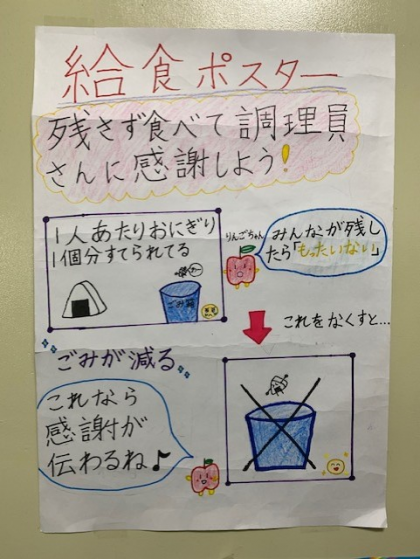 給食ポスター
残さず食べて調理員
さんに感謝しよう!
1人あたりおにぎり
1個分すてられてる
ごみ箱
りんごちゃん
みんなが残し
たら「もったいない」
これをなくすと…
ごみが減る
これなら
感謝が
伝わるね♪